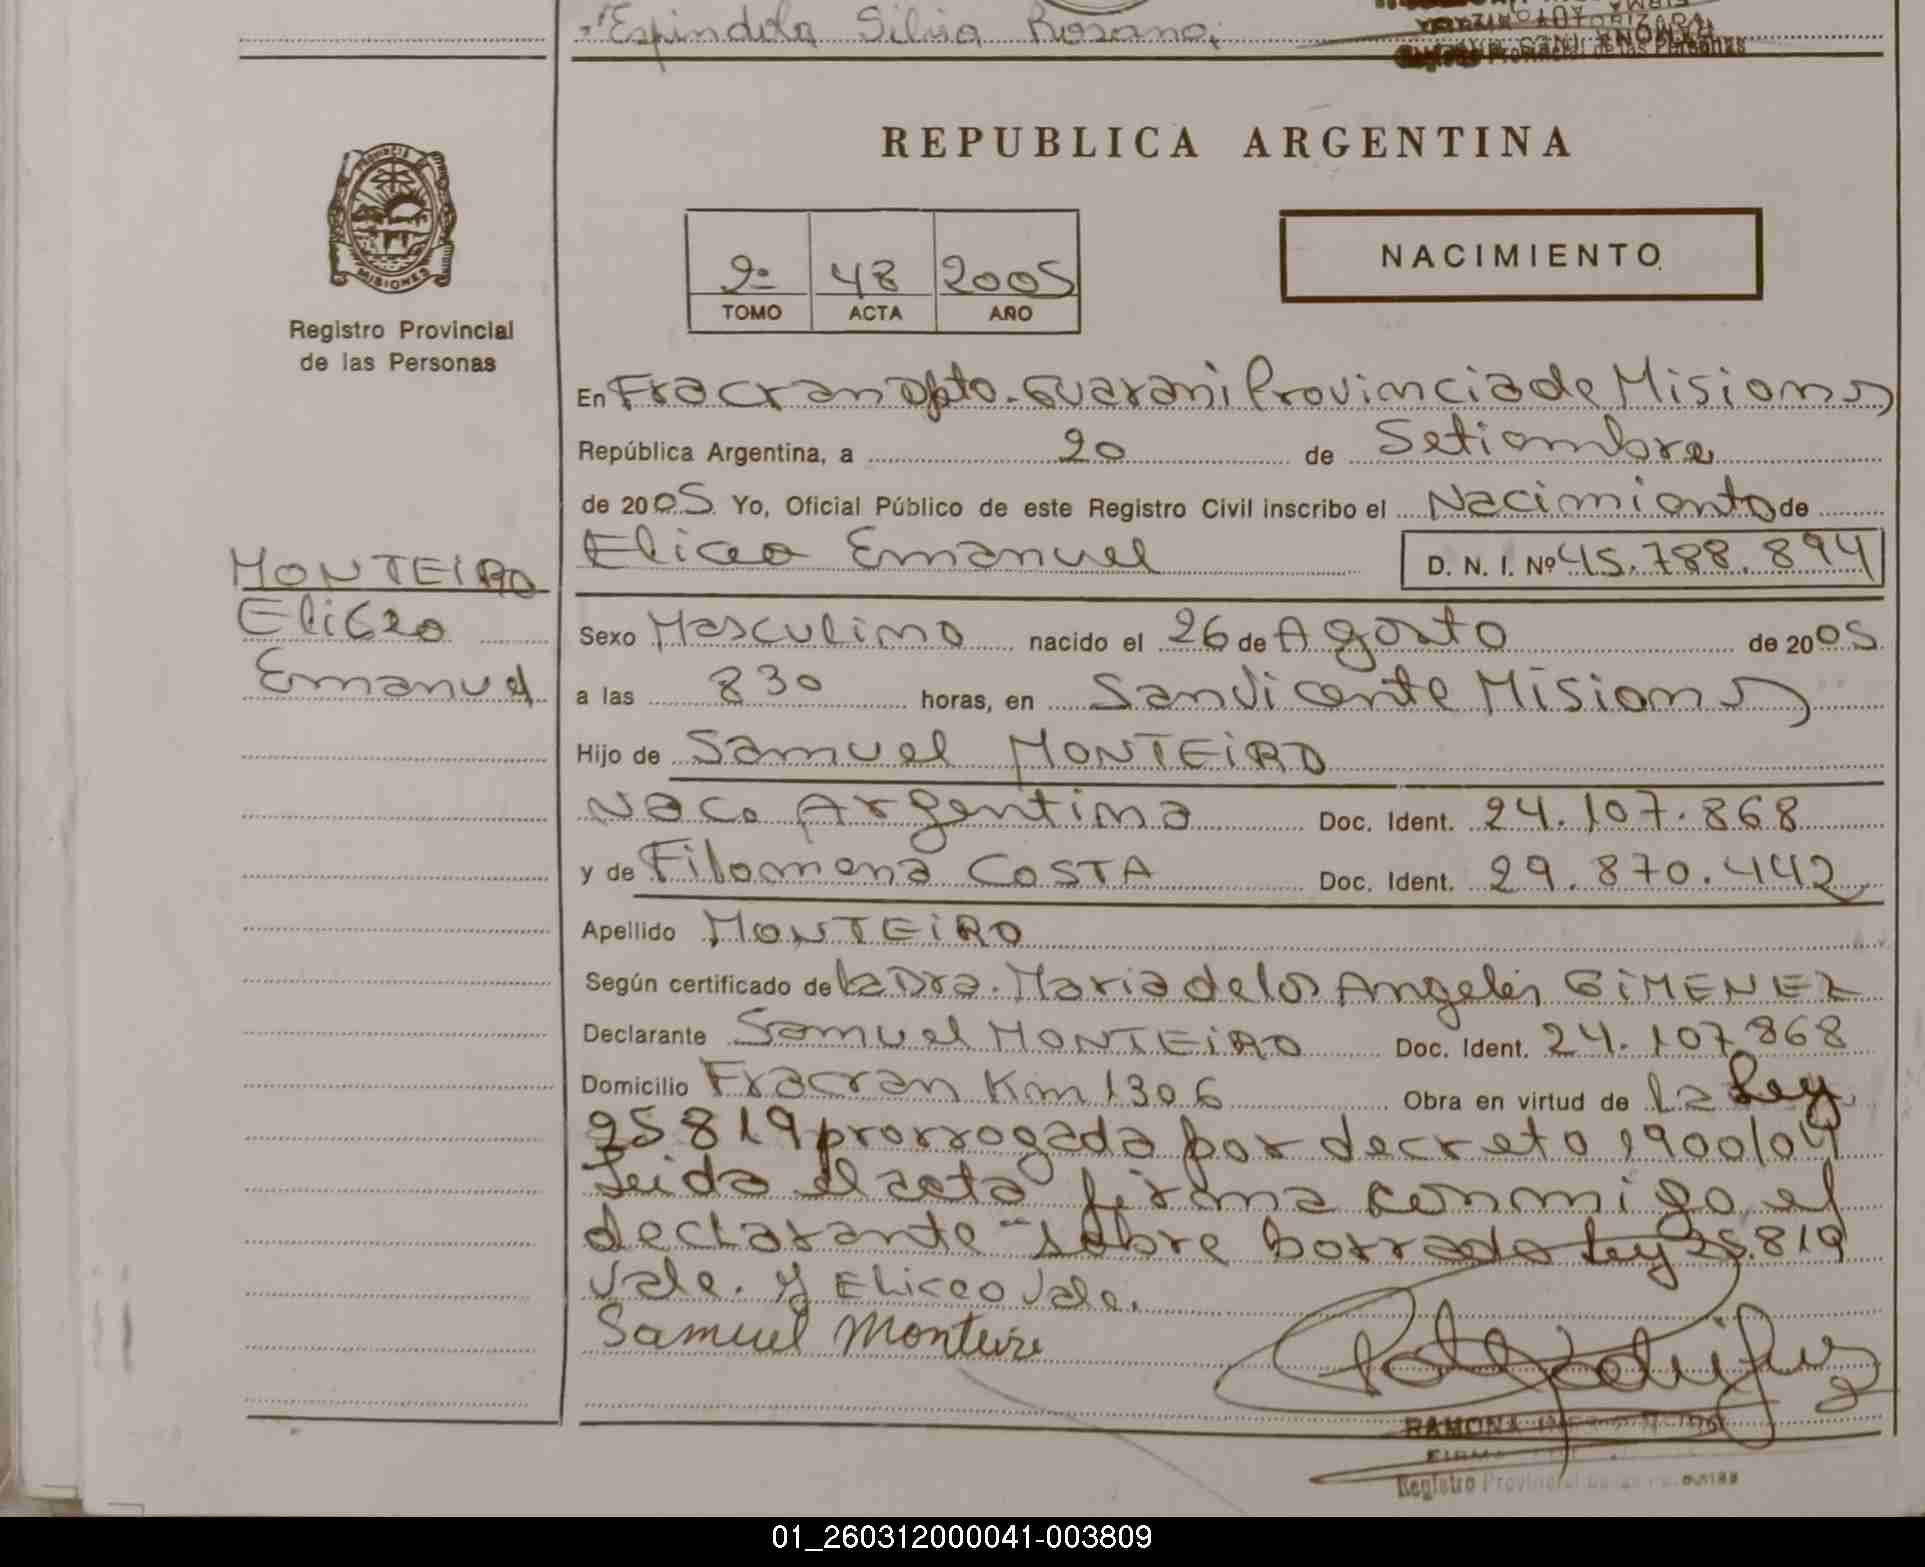 Espindola Silvia Rosana.
REPUBLICA ARGENTINA
PROVINCIA DE
MISIONES
Registro Provincial
de las Personas
2º 48 2005
TOMO ACTA AÑO
NACIMIENTO
En Fracran Dpto. Guarani Provincia de Misiones
República Argentina, a 20 de Setiembre
de 2005 Yo, Oficial Público de este Registro Civil inscribo el Nacimiento de
Eliceo Emanuel D. N. I. Nº 45.788.894
MONTEIRO
Eliceo
Emanuel
Sexo Masculino nacido el 26 de Agosto de 2005
a las 830 horas, en San Vicente Misiones
Hijo de Samuel MONTEIRO
Nac. Argentina Doc. Ident. 24.107.868
y de Filomena COSTA Doc. Ident. 29.870.442
Apellido MONTEIRO
Según certificado de la Dra. Maria de los Angeles GIMENEZ
Declarante Samuel MONTEIRO Doc. Ident. 24.107.868
Domicilio Fracran Km 1306 Obra en virtud de la Ley
25819 prorrogada por decreto 1900/04
Leida el acta firma conmigo el
declarante - sobre borrado Ley 25.819
vale. y Eliceo vale.
Samuel Monteiro
RAMONA
Registro Provincial de las
01_260312000041-003809